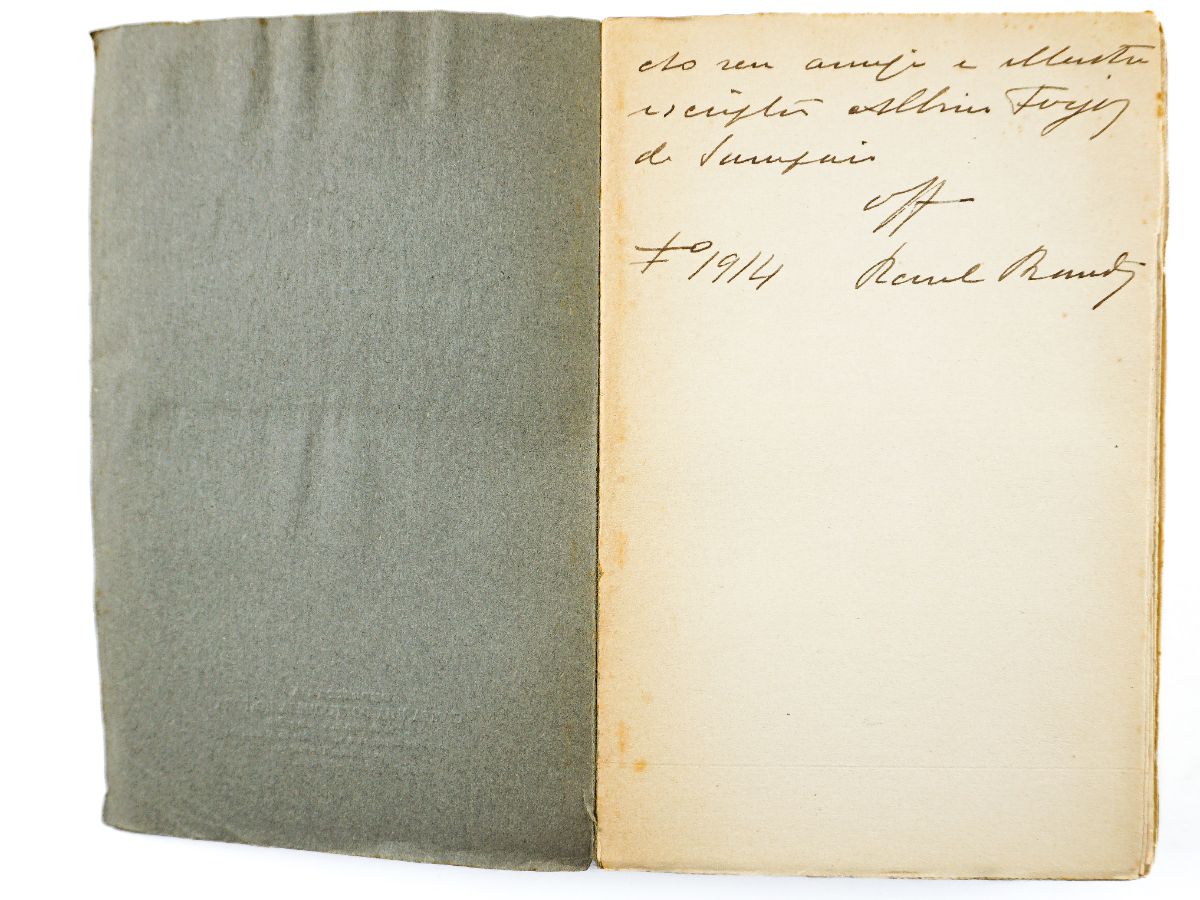 Ao seu amigo e illustre
escriptor Albino Forjaz
de Sampaio
off
Fº 1914 Raul Brandão